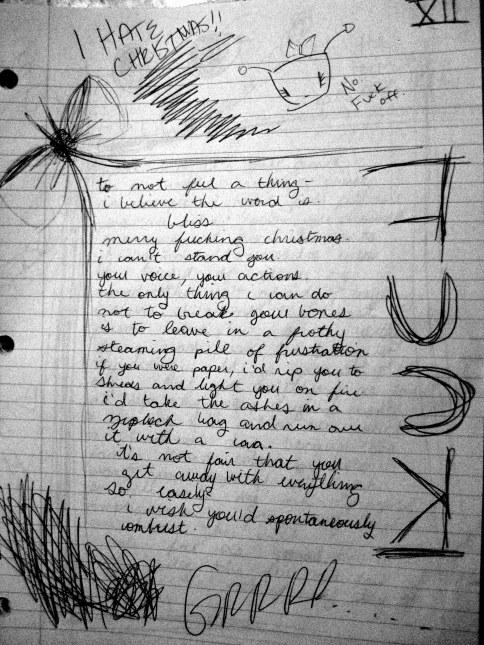 I HATE
CHRISTMAS!!
No
Fuck
off.
XII
to not feel a thing-
i believe the word is
bliss
merry fucking christmas.
i can't stand you.
your voice, your actions
the only thing i can do
not to break your bones
is to leave in a frothy
steaming pile of frustration
if you were paper, i'd rip you to
shreds and light you on fire
i'd take the ashes in a
ziplock bag and run over
it with a car.
it's not fair that you
get away with everything
so easily
i wish you'd spontaneously
combust.
FUCK
GRRRR.....